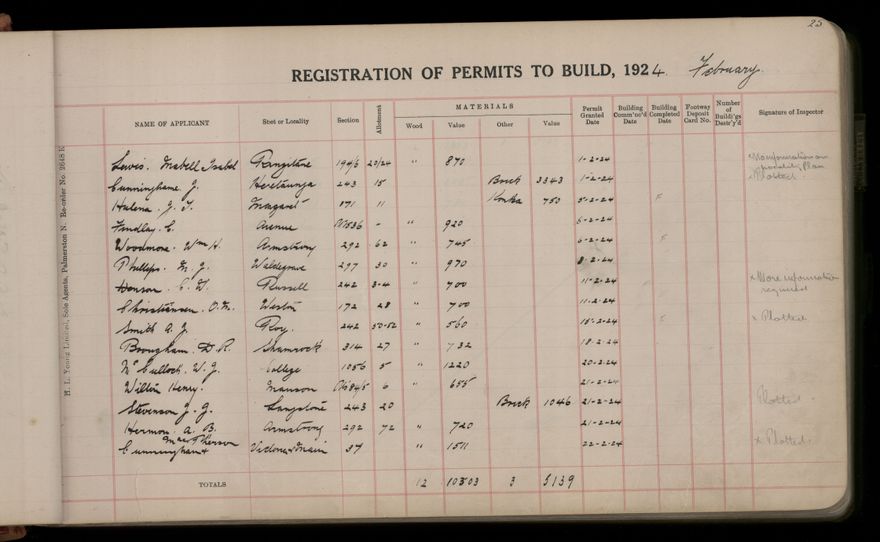 25
REGISTRATION OF PERMITS TO BUILD, 1924. February.
NAME OF APPLICANT Stret or Locality Section Allotment MATERIALS Wood Value Other Value Permit Granted Date Building Comm'nc'd Date Building Completed Date Footway Deposit Card No. Number of Buildi'gs Destr'y'd Signature of Inspector
Lewis. Mabell Isabel Rangitane 194/6 23/24 " 870 1-2-24 x No information on
Cunninghame J. Heretaunga 243 15 Brick 3343 1-2-24 x Plotted.
J. T. Margaret 171 11 750 5-2-24 F
Findlay C. Avenue 1536 - " 920 6-2-24
Woodmore. Wm H. Armstrong 292 62 " 745 6-2-24 F
Phillips. M. J. Waldegrave 297 30 " 970 8-2-24
Henson. C. W. Russell 242 3-4 " 700 11-2-24 x More information required
Christiansen. O. M. Weston 172 28 " 700 11-2-24
Smith A. J. Roy. 242 50-52 " 560 15-2-24 F x Plotted.
Brougham. D. R. Shamrock 314 27 " 732 18-2-24
McCulloch. W. J. College 1056 5 " 1220 20-2-24
Wilton Henry. Manson 6 " 655 21-2-24
Stevenson J. J. Langstone 243 20 Brick 1046 21-2-24 Plotted.
Hermon. A. B. Armstrong 292 72 " 720 21-2-24
Cunningham & MacPherson Victoria & Main 37 " 1511 22-2-24 x Plotted.
TOTALS 12 10303 3 5139
H. L. Young Limited, Sole Agents, Palmerston N. Re-order No. 2648K